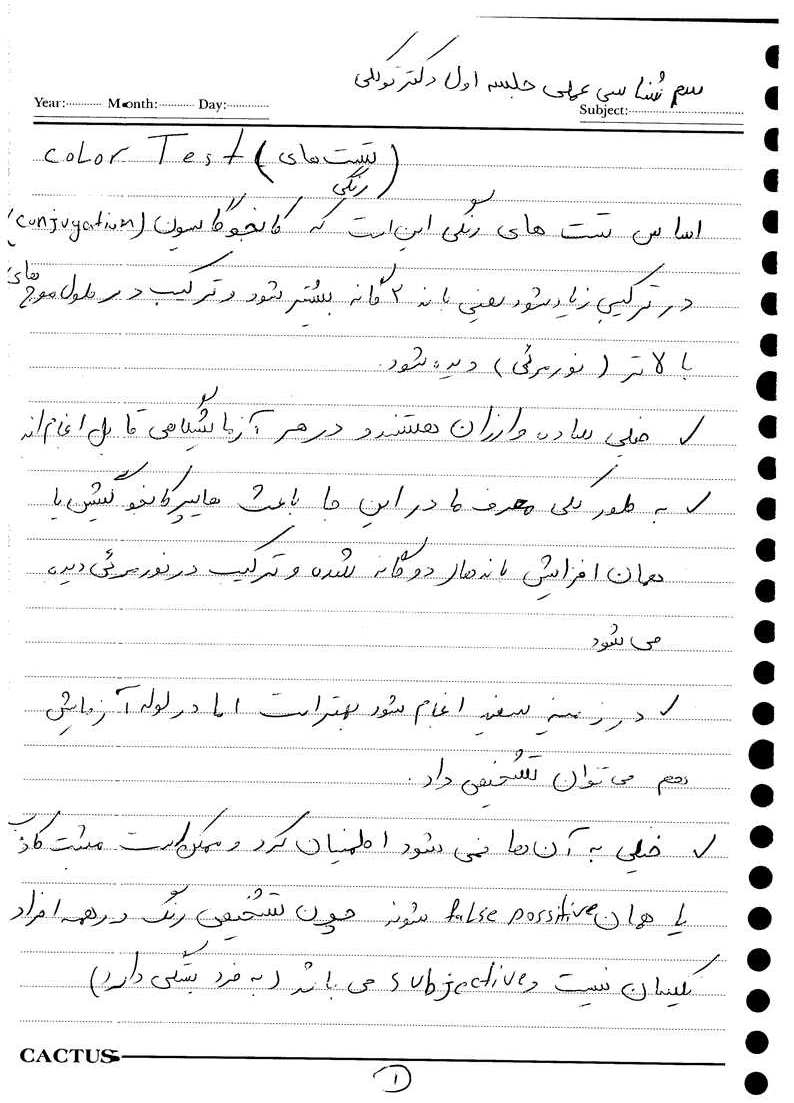 سم شناسی عملی جلسه اول دکتر توکلی
Year:.......... Month:.......... Day:............ Subject:
Color Test (تست های رنگی)
اساس تست های رنگی این است که کانجوگاسیون (conjugation)
در ترکیبی زیاد شود یعنی باند ۲ گانه بیشتر شود و ترکیب در طول موج های
بالاتر (نور مرئی) دیده شود.
✓ خیلی ساده و ارزان هستند و در هر آزمایشگاهی قابل انجام اند
✓ به طور کلی معرف ما در این جا باعث هایپرکانجوگیشن یا
همان افزایش باندهای دوگانه شده و ترکیب در نور مرئی دیده
می شود
✓ در زمینه سفید انجام شود بهتر است اما در لوله آزمایش
هم می توان تشخیص داد.
✓ خیلی به آن ها نمی شود اطمینان کرد و ممکن است مثبت کاذب
یا همان false possitive شوند چون تشخیص رنگ در همه افراد
یکسان نیست و subjective می باشد (به فرد بستگی دارد)
CACTUS
۱